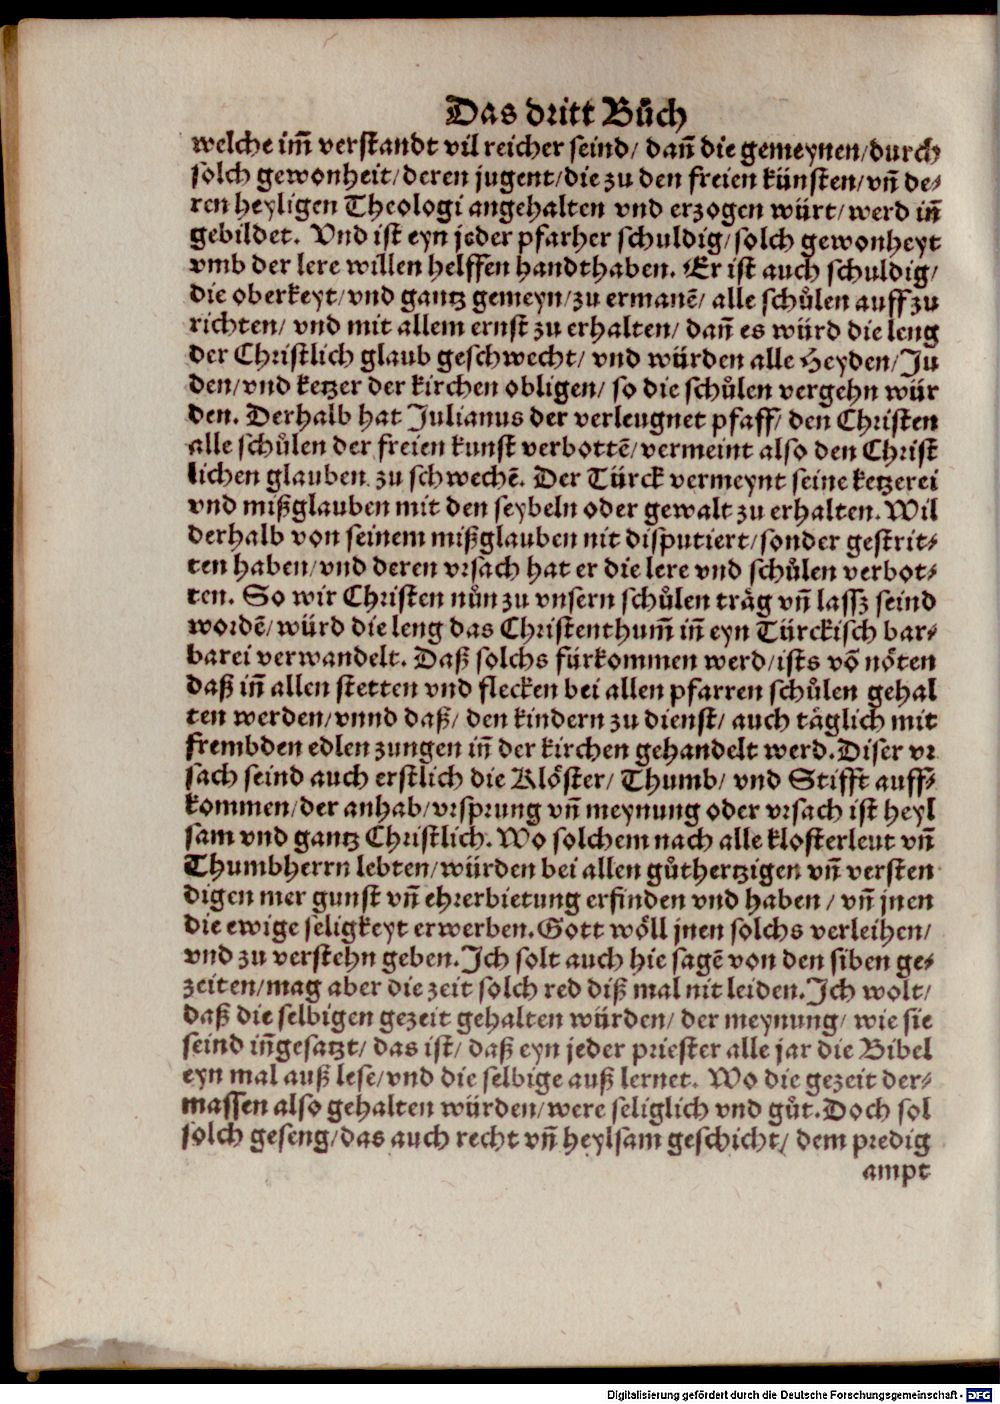 Das dritt Bůch
welche im̃ verstandt vil reicher seind/ dañ die gemeynen/durch
solch gewonheit/deren jugent/die zu den freien künsten/vñ de⸗
ren heyligen Theologi angehalten vnd erzogen würt/werd iñ
gebildet. Vnd ist eyn jeder pfarher schuldig/solch gewonheyt
vmb der lere willen helffen handthaben. Er ist auch schuldig/
die oberkeyt/vnd gantz gemeyn/zu ermanẽ/ alle schůlen auff zu
richten/ vnd mit allem ernst zu erhalten/ dañ es würd die leng
der Christlich glaub geschwecht/ vnd würden alle Heyden/Ju
den/vnd ketzer der kirchen obligen/ so die schůlen vergehn wür
den. Derhalb hat Julianus der verleugnet pfaff/ den Christen
alle schůlen der freien kunst verbottẽ/vermeint also den Christ
lichen glauben zu schwechẽ. Der Türck vermeynt seine ketzerei
vnd mißglauben mit den seybeln oder gewalt zu erhalten. Wil
derhalb von seinem mißglauben nit disputiert/sonder gestrit⸗
ten haben/vnd deren vrsach hat er die lere vnd schůlen verbot⸗
ten. So wir Christen nůn zu vnsern schůlen träg vñ lassz seind
wordẽ/würd die leng das Christenthum̃ iñ eyn Türckisch bar⸗
barei verwandelt. Daß solchs fürkommen werd/ists võ nöten
daß iñ allen stetten vnd flecken bei allen pfarren schůlen gehal
ten werden/vnnd daß/ den kindern zu dienst/ auch täglich mit
frembden edlen zungen iñ der kirchen gehandelt werd. Diser vr
sach seind auch erstlich die Klöster/ Thumb/ vnd Stifft auff⸗
kommen/der anhab/vrsprung vñ meynung oder vrsach ist heyl
sam vnd gantz Christlich. Wo solchem nach alle klosterleut vñ
Thumbherrn lebten/würden bei allen gůthertzigen vñ versten
digen mer gunst vñ ehrerbietung erfinden vnd haben / vñ jnen
die ewige seligkeyt erwerben. Gott wöll jnen solchs verleihen/
vnd zu verstehn geben. Ich solt auch hie sagẽ von den siben ge⸗
zeiten/mag aber die zeit solch red diß mal nit leiden. Ich wolt/
daß die selbigen gezeit gehalten würden/ der meynung/ wie sie
seind iñgesatzt/ das ist/ daß eyn jeder priester alle jar die Bibel
eyn mal auß lese/vnd die selbige auß lernet. Wo die gezeit der⸗
massen also gehalten würden/were seliglich vnd gůt. Doch sol
solch geseng/das auch recht vñ heylsam geschicht/ dem predig
ampt
Digitalisierung gefördert durch die Deutsche Forschungsgemeinschaft - DFG